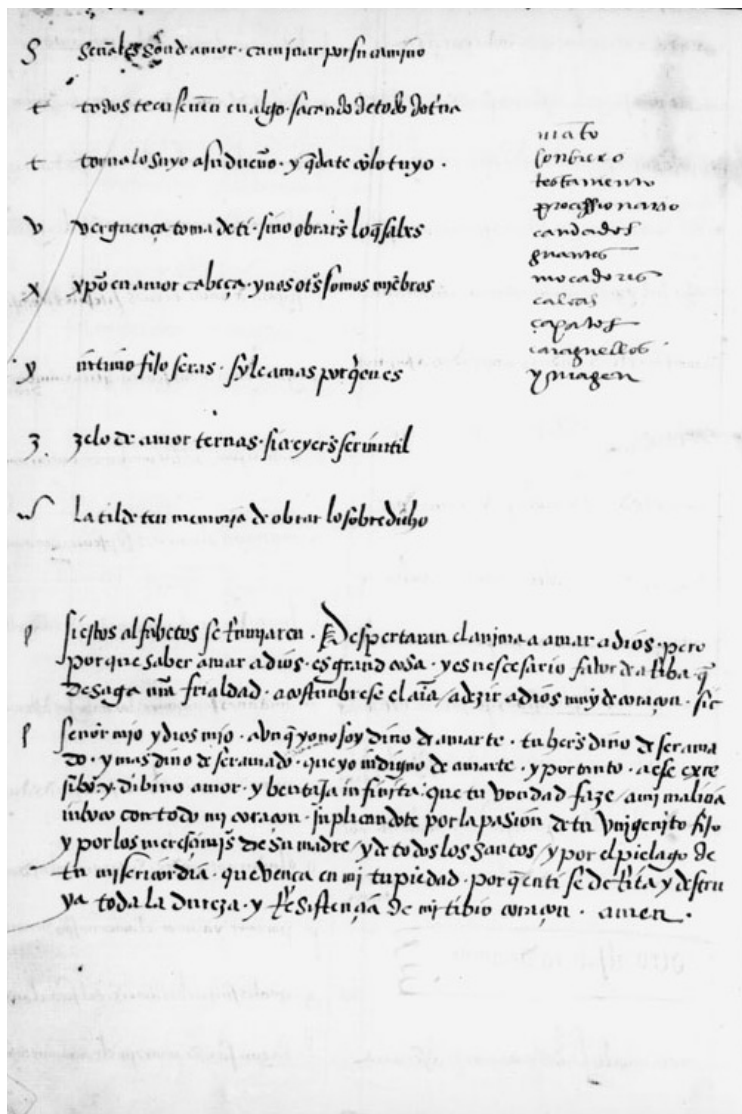 S señales son de amor · caminar por su camino
t todos te enseñen en algo · sacando de todo dotrina
t torna lo suyo a su dueño · y qdate cõ lo tuyo ·
v verguença toma de ti · sino obrars lo q sabes
x xpõ en amor cabeça · y nos otrs somos miẽbros
y intimo fijo seras · sy le amas por qen es
z zelo de amor ternas · si creyers ser inutil
la tilde ten memoria de obrar lo sobredicho
manto
sonbrero
testamento
processionario
candados
guantes
mocadores
calças
çapatos
caraguelles
ymagen
si estos alfabetos se rumiaren · Despertaran el anima a amar a dios · pero
porque saber amar a dios · es grand cosa · y es nescesario fabor de arriba · q̃
desaga nr̃a frialdad · acostunbrese el aĩa / a dezir a dios muy de coraçon · sic
señor mio y dios mio · avnq̃ yo no soy dino de amarte · tu heres dino de ser ama
do · y mas dino de ser amado · que yo indigno de amarte · y por tanto · a ese exce
sibo · y dibino amor · y bentaja infinita · que tu vondad faze / a mi maliçia
inboco con todo mi coraçon · suplicandote por la pasion de tu vnigenito fijo
y por los mereçimis̃ de su madre / y de todos los santos / y por el pielago de
tu misericordia · que vença en mi tu piedad · porq̃ en ti se derrita y destru
ya toda la dureza · y rresistençia de mi tibio coraçon · amen ·